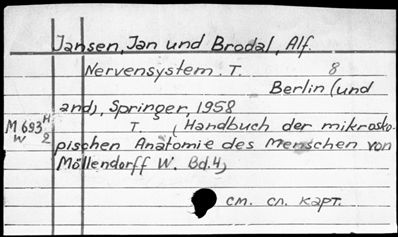 Jansen, Jan und Brodal, Alf.
Nervensystem. T. 8
Berlin (und
and), Springer, 1958
M 693 H T. (Handbuch der mikrosko-
W 2 pischen Anatomie des Menschen von
Möllendorff W. Bd. 4)
см. сл. карт.